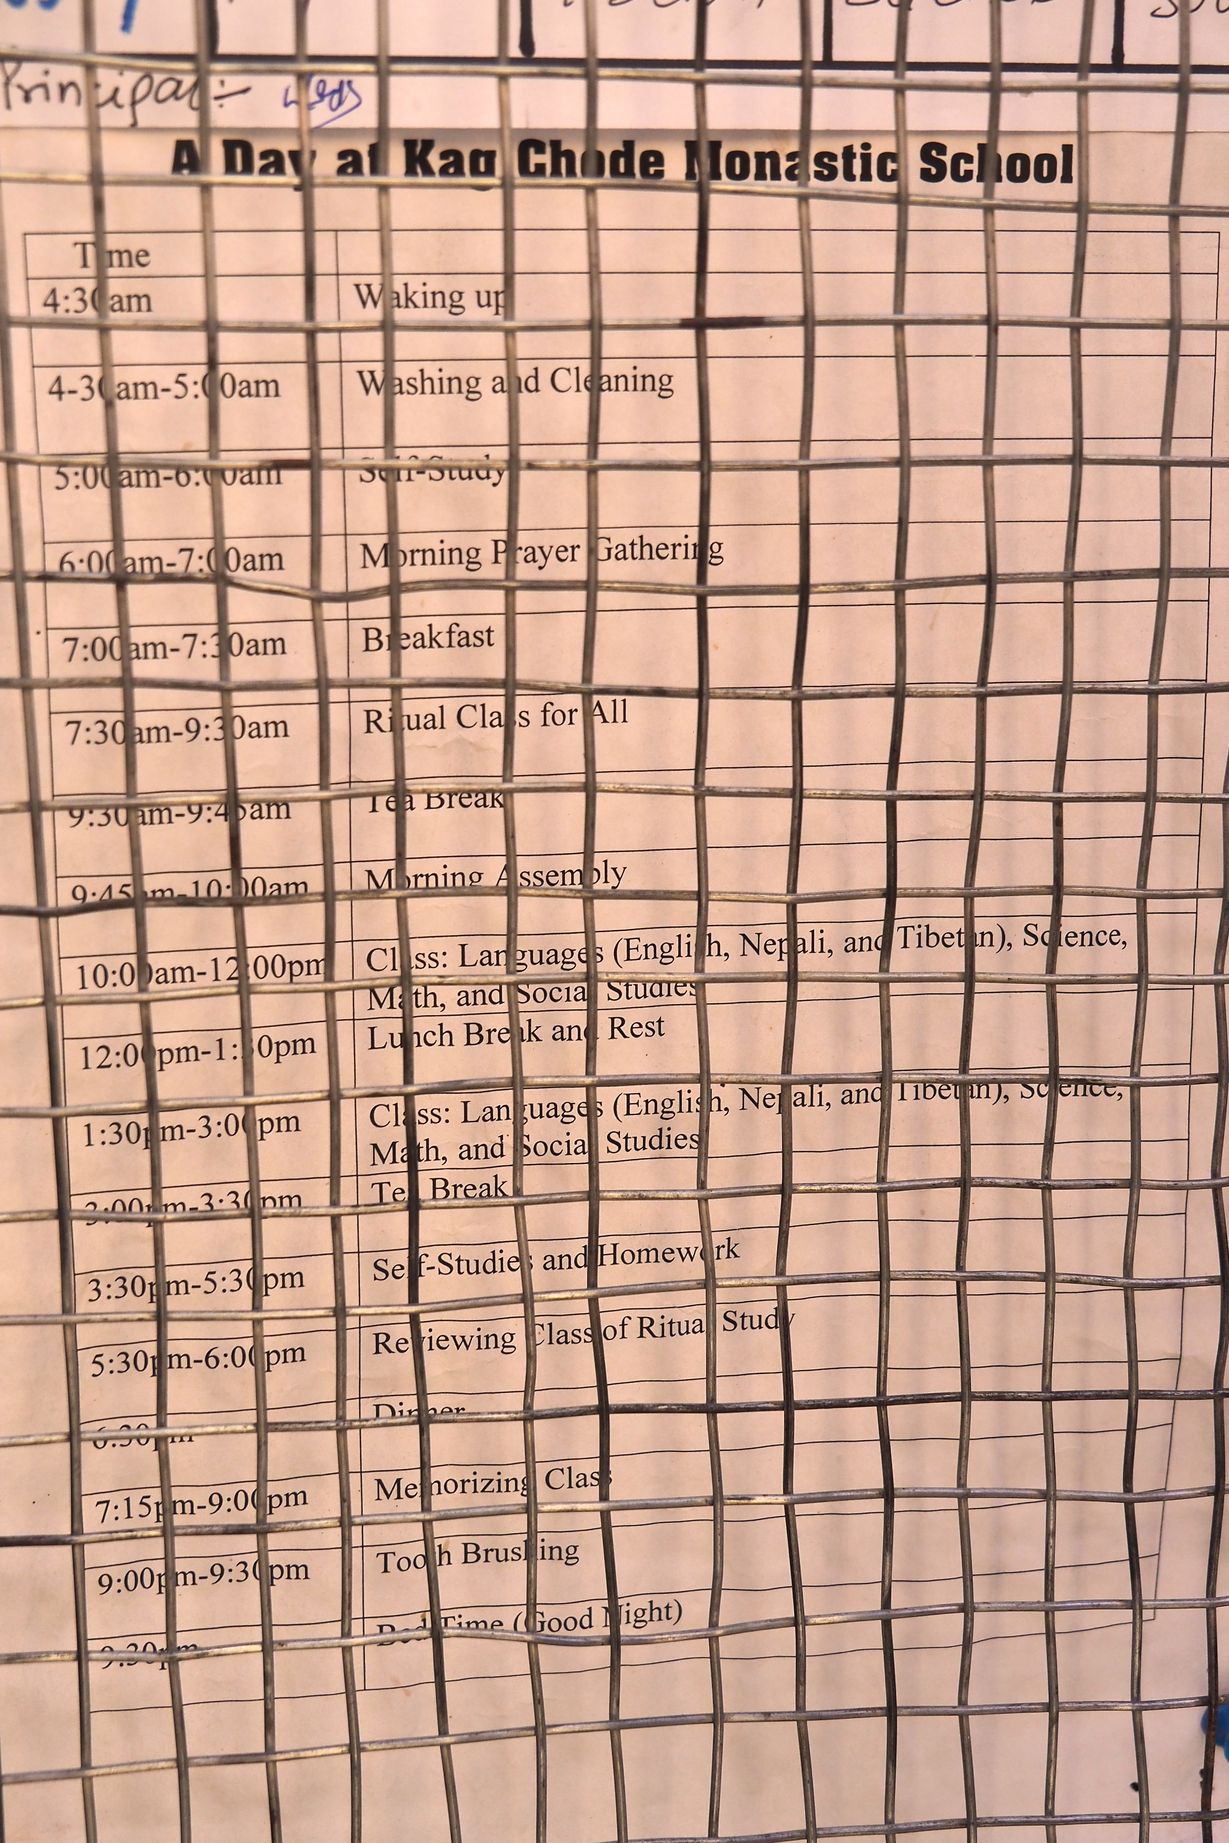 Principal :-
A Day at Kag Chode Monastic School
Time
4:30am Waking up
4-30am-5:00am Washing and Cleaning
5:00am-6:00am Self-Study
6:00am-7:00am Morning Prayer Gathering
7:00am-7:30am Breakfast
7:30am-9:30am Ritual Class for All
9:30am-9:45am Tea Break
9:45am-10:00am Morning Assembly
10:00am-12:00pm Class: Languages (English, Nepali, and Tibetan), Science,
Math, and Social Studies
12:00pm-1:30pm Lunch Break and Rest
1:30pm-3:00pm Class: Languages (English, Nepali, and Tibetan), Science,
Math, and Social Studies
3:00pm-3:30pm Tea Break
3:30pm-5:30pm Self-Studies and Homework
5:30pm-6:00pm Reviewing Class of Ritual Study
6:30pm Dinner
7:15pm-9:00pm Memorizing Class
9:00pm-9:30pm Tooth Brushing
9:30pm Bed Time (Good Night)